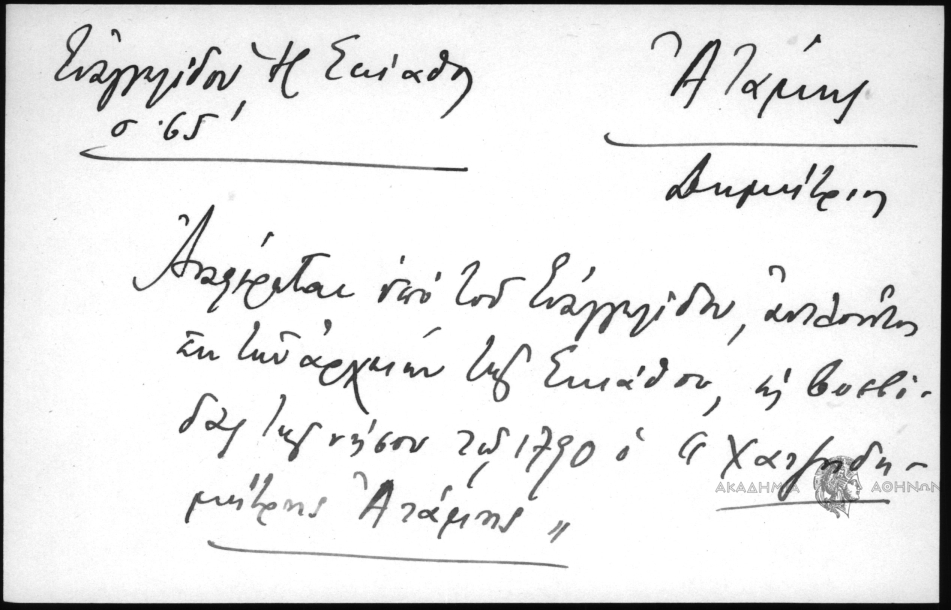 Εὐαγγελίδου Ἡ Σκιάθος
σ. 65
Ἀτάμης
Δημήτριος
Ἀναφέρεται ὑπὸ τοῦ Εὐαγγελίδου, ἀντλοῦντος
ἐκ τῶν ἀρχείων τῆς Σκιάθου, ὡς
τῆς νήσου τῷ 1790 ὁ " Χατζηδη-
μήτρης Ἀτάμης "
ΑΚΑΔΗΜΙΑ ΑΘΗΝΩΝ